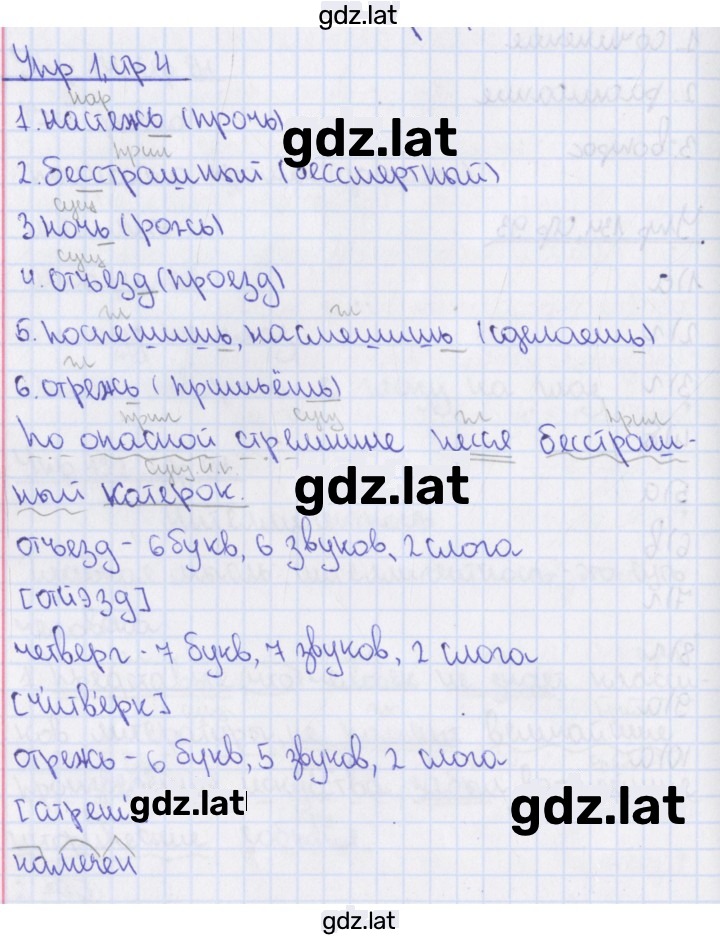 gdz.lat
Упр 1, стр 4
нар
1. настежь (прочь)
gdz.lat
прил
2. бесстрашный (бессмертный)
сущ
3 ночь (рожь)
сущ
4. отъезд (проезд)
гл гл
5. поспешишь, насмешишь (сделаешь)
гл
6. отрежь (пришьёшь)
прил сущ гл прил
По опасной стремнине несся бесстраш-
сущ И.п.
ный катерок.
gdz.lat
отъезд - 6 букв, 6 звуков, 2 слога
[атйэзд]
четверг - 7 букв, 7 звуков, 2 слога
[ч'итв'эрк]
отрежь - 6 букв, 5 звуков, 2 слога
gdz.lat
gdz.lat
намечен
gdz.lat